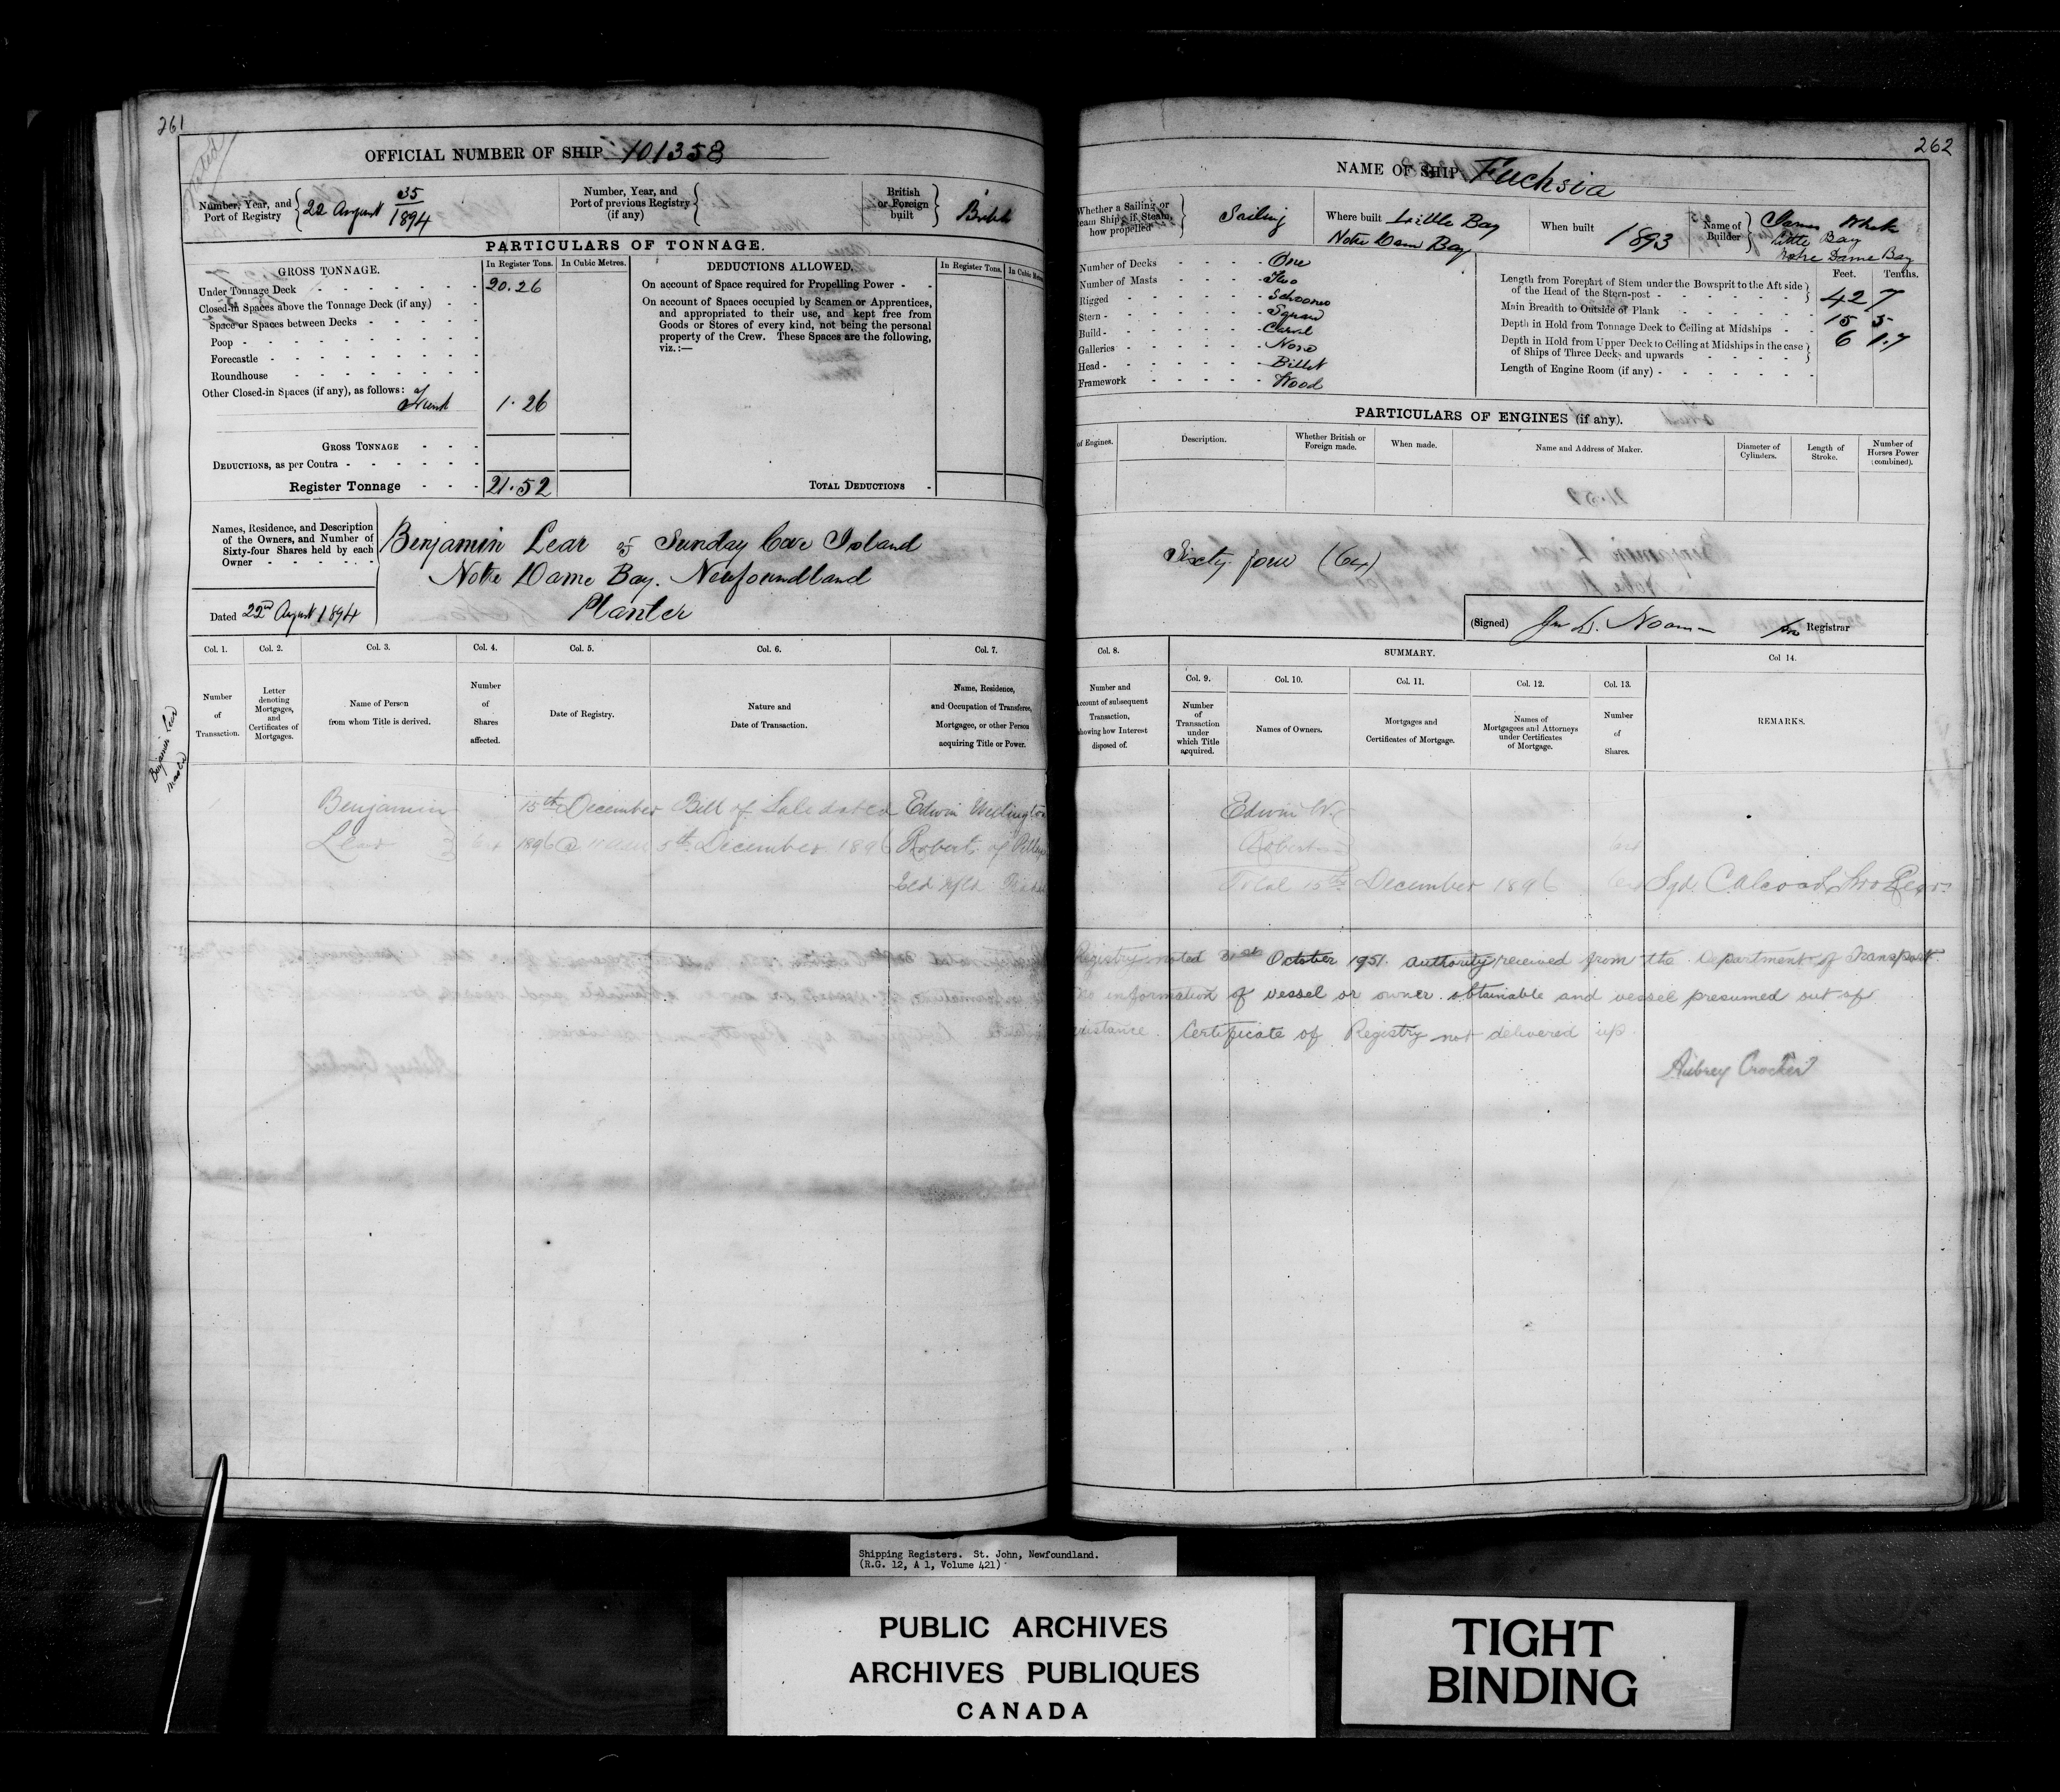 261
OFFICIAL NUMBER OF SHIP 101358
Number, Year, and Port of Registry 22 August 35/1894
Number, Year, and Port of previous Registry (if any)
British or Foreign built British
PARTICULARS OF TONNAGE.
GROSS TONNAGE.
In Register Tons. In Cubic Metres.
Under Tonnage Deck 20.26
Closed-in Spaces above the Tonnage Deck (if any)
Space or Spaces between Decks
Poop
Forecastle
Roundhouse
Other Closed-in Spaces (if any), as follows:
Trunk 1.26
GROSS TONNAGE
DEDUCTIONS, as per Contra
Register Tonnage 21.52
DEDUCTIONS ALLOWED.
In Register Tons. In Cubic
On account of Space required for Propelling Power
On account of Spaces occupied by Seamen or Apprentices,
and appropriated to their use, and kept free from
Goods or Stores of every kind, not being the personal
property of the Crew. These Spaces are the following,
viz.:—
TOTAL DEDUCTIONS
Names, Residence, and Description
of the Owners, and Number of
Sixty-four Shares held by each
Owner
Benjamin Lear of Sunday Cove Island
Notre Dame Bay. Newfoundland
Planter
Dated 22nd August 1894
Col. 1. Col. 2. Col. 3. Col. 4. Col. 5. Col. 6. Col. 7.
Number of Transaction.
Letter denoting Mortgages, and Certificates of Mortgages.
Name of Person from whom Title is derived.
Number of Shares affected.
Date of Registry.
Nature and Date of Transaction.
Name, Residence, and Occupation of Transferee, Mortgagee, or other Person acquiring Title or Power.
Benjamin Lear
master
Benjamin 15th December Bill of Sale dated Edwin Wellington
Lear 64 1896 @ 11 am 5th December 1896 Robert of Pilleys
Isld Nfld
262
NAME OF SHIP Fuchsia
Whether a Sailing or
eam Ship; if Steam,
how propelled
Sailing
Where built Little Bay
Notre Dame Bay
When built 1893
Name of Builder James
Little Bay
Notre Dame Bay
Number of Decks One
Number of Masts Two
Rigged Schooner
Stern Square
Build Carvel
Galleries None
Head Billet
Framework Wood
Feet. Tenths.
Length from Forepart of Stem under the Bowsprit to the Aft side
of the Head of the Stern-post 42 7
Main Breadth to Outside of Plank 15 5
Depth in Hold from Tonnage Deck to Ceiling at Midships 6 1.7
Depth in Hold from Upper Deck to Ceiling at Midships in the case
of Ships of Three Decks and upwards
Length of Engine Room (if any)
PARTICULARS OF ENGINES (if any).
of Engines.
Description.
Whether British or Foreign made.
When made.
Name and Address of Maker.
Diameter of Cylinders.
Length of Stroke.
Number of Horses Power (combined).
Sixty four (64)
(Signed) Registrar
Col. 8. SUMMARY. Col 14.
Col. 9. Col. 10. Col. 11. Col. 12. Col. 13.
Number and
ccount of subsequent
Transaction,
howing how Interest
disposed of.
Number of Transaction under which Title acquired.
Names of Owners.
Mortgages and Certificates of Mortgage.
Names of Mortgagees and Attorneys under Certificates of Mortgage.
Number of Shares.
REMARKS.
Edwin W.
Robert 64
Total 15th December 1896 64 Sgd.
Registry noted 31st October 1951. Authority received from the Department of Transport.
No information of vessel or owner obtainable and vessel presumed out of
existance. Certificate of Registry not delivered up.
Aubrey Crocker
Shipping Registers. St. John, Newfoundland.
(R.G. 12, A 1, Volume 421)
PUBLIC ARCHIVES
ARCHIVES PUBLIQUES
CANADA
TIGHT
BINDING